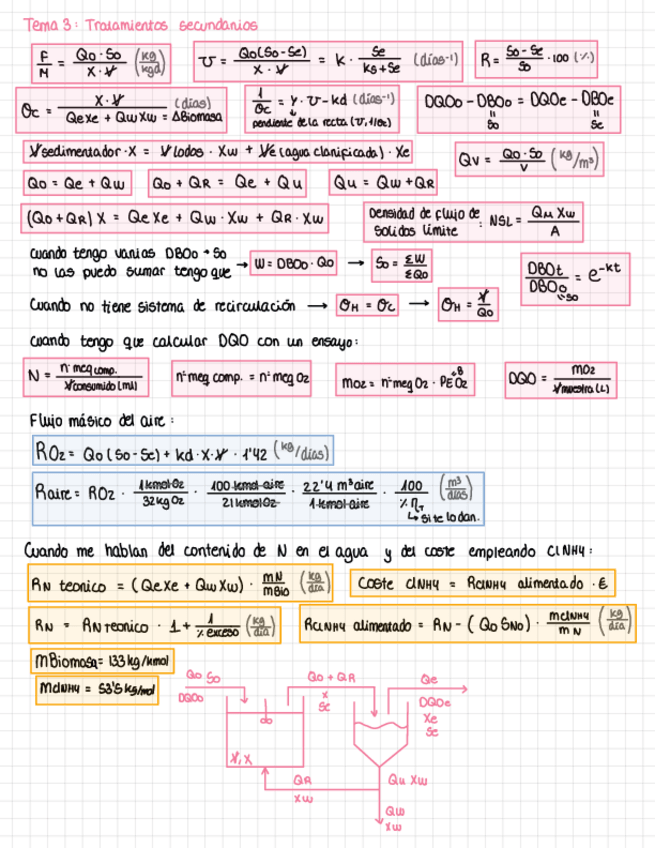 Tema 3: Tratamientos secundarios
F/M = Qo·So / X·V (kg/kgd)
U = Qo(So-Se) / X·V = k · Se / ks+Se (días⁻¹)
R = So-Se / So · 100 (%)
θc = X·V / QeXe + QwXw = ΔBiomasa (días)
1/θc = Y·U - kd (días⁻¹)
pendiente de la recta (U, 1/θc)
DQOo - DBOo = DQOe - DBOe
So Se
Vsedimentador · X = Vlodos · Xw + Ve (agua clarificada) · Xe
Qv = Qo·So / V (kg/m³)
Qo = Qe + Qw
Qo + QR = Qe + Qu
Qu = Qw + QR
(Qo + QR) X = Qe Xe + Qw · Xw + QR · Xw
Densidad de flujo de sólidos límite : NSL = Qu Xw / A
Cuando tengo varias DBOo → So
no las puedo sumar tengo que → W = DBOo · Qo → So = ΣW / ΣQo
DBOt / DBOo = e^-kt
↳ So
Cuando no tiene sistema de recirculación → θH = θc → θH = V / Qo
Cuando tengo que calcular DQO con un ensayo:
N = nº meq comp. / V consumido (ml)
nº meq comp. = nº meq O2
mO2 = nº meq O2 · PE O2
8
DQO = mO2 / V muestra (L)
Flujo másico del aire:
RO2 = Qo (So - Se) + kd · X · V · 1'42 (kg/días)
Raire = RO2 · 1 kmol O2 / 32 kg O2 · 100 kmol aire / 21 kmol O2 · 22'4 m³ aire / 1 kmol aire · 100 / % ητ (m³/días)
↳ si te lo dan.
Cuando me hablan del contenido de N en el agua y del coste empleando ClNH4:
RN teorico = (QeXe + QwXw) · mN / mBio (kg/día)
Coste ClNH4 = RClNH4 alimentado · €
RN = RN teorico · 1 + 1 / % exceso (kg/día)
RClNH4 alimentado = RN - (Qo SNo) · mClNH4 / mN (kg/día)
mBiomasa = 133 kg/kmol
mClNH4 = 53'5 kg/mol
Qo So
DQOo
Qo + QR
X
Se
Qe
DQOe
Xe
Se
V, X
QR
Xw
Qu Xw
Qw
Xw